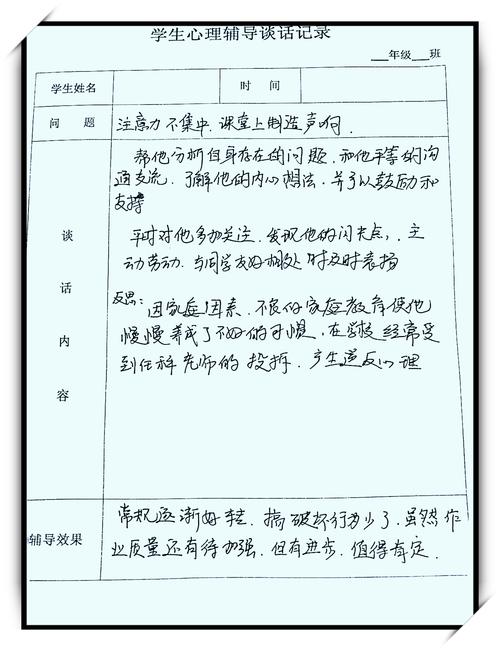 学生心理辅导谈话记录
___年级___班
学生姓名 时间
问题 注意力不集中.课堂上制造声响.
谈话内容
帮他分析自身存在的问题,和他平等的沟
通交流.了解他的内心想法,并予以鼓励和
支持
平时对他多加关注.发现他的闪光点,.主
动劳动.与同学友好相处时及时表扬
反思:因家庭因素.不良的家庭教育使他
慢慢养成了不好的习惯,在学校经常受
到任科老师的投拆.产生逆反心理
辅导效果
常规逐渐好转.搞破坏行为少了.虽然作
业质量还有待加强.但有进步.值得肯定.